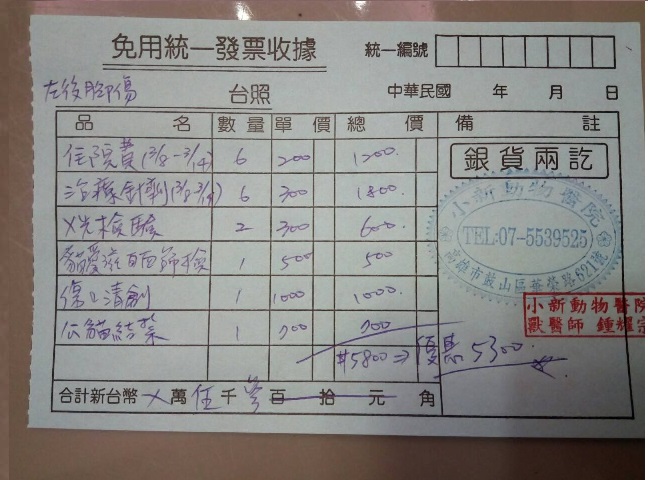 免用統一發票收據
統一編號
左後腳傷 台照 中華民國 年 月 日
品 名 數量 單價 總價 備註
住院費(3/8-3/14) 6 200 1200.
治療針劑(3/8-3/14) 6 300 1800.
X光檢驗 2 300 600.
貓愛滋 白血 篩檢 1 500 500
傷口清創 1 1000 1000.
公貓結紮 1 700 700
$5800⇒優惠5300.
合計新台幣 X 萬 伍 千 參 百 拾 元 角
銀貨兩訖
小新動物醫院
TEL:07-5539525
高雄市鼓山區華榮路621號
小新動物醫院
獸醫師 鍾耀宗